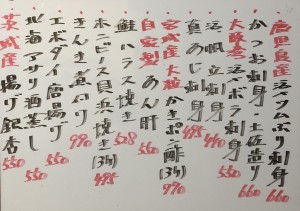 鹿児島産 活〆カツムぶり刺身 660
かつお刺身・土佐造り 660
大阪産 活〆ボラ刺身 550
活〆帆立刺身 440
真あじ刺身 495
宮城産 大粒かきポン酢(3ヶ) 970
自家製 あん肝 550
鮭ハラス焼き 528
本ニビース貝浜焼き(3ヶ) 495
きんき煮付け 970
エボダイ唐揚げ 550
北海アサリ酒蒸し 550
茨城産 揚げ銀杏 550